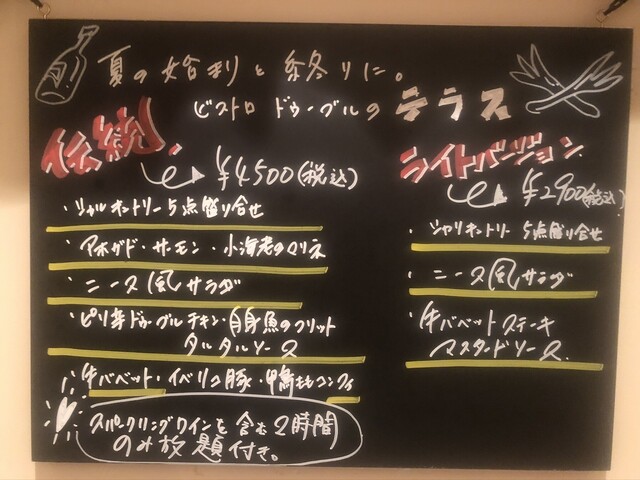 夏の始まりと終りに。
ビストロ ドゥーグルの テラス
伝統
¥4500(税込)
・シャルキュトリー5点盛り合せ
・アボガド・サーモン・小海老のマリネ
・ニース風サラダ
・ピリ辛ドゥーグルチキン・白身魚のフリット
タルタルソース
・牛バベット・イベリコ豚・鴨ももコンフィ
スパークリングワインを含む2時間
のみ放題付き。
ライトバージョン
¥2900(税込)
・シャルキュトリー 5点盛り合せ
・ニース風サラダ
・牛バベットステーキ
マスタードソース